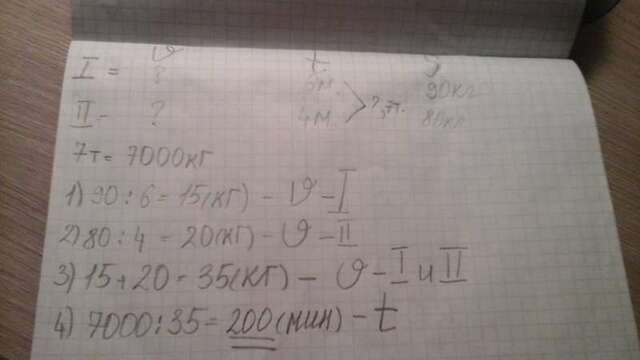 υ t S
I = ? 6м. 90кг
II - ? 4м. ?, 7т. 80кг
7т = 7000кг
1) 90 : 6 = 15 (кг) - υ - I
2) 80 : 4 = 20 (кг) - υ - II
3) 15 + 20 = 35 (кг) - υ - I и II
4) 7000 : 35 = 200 (мин) - t